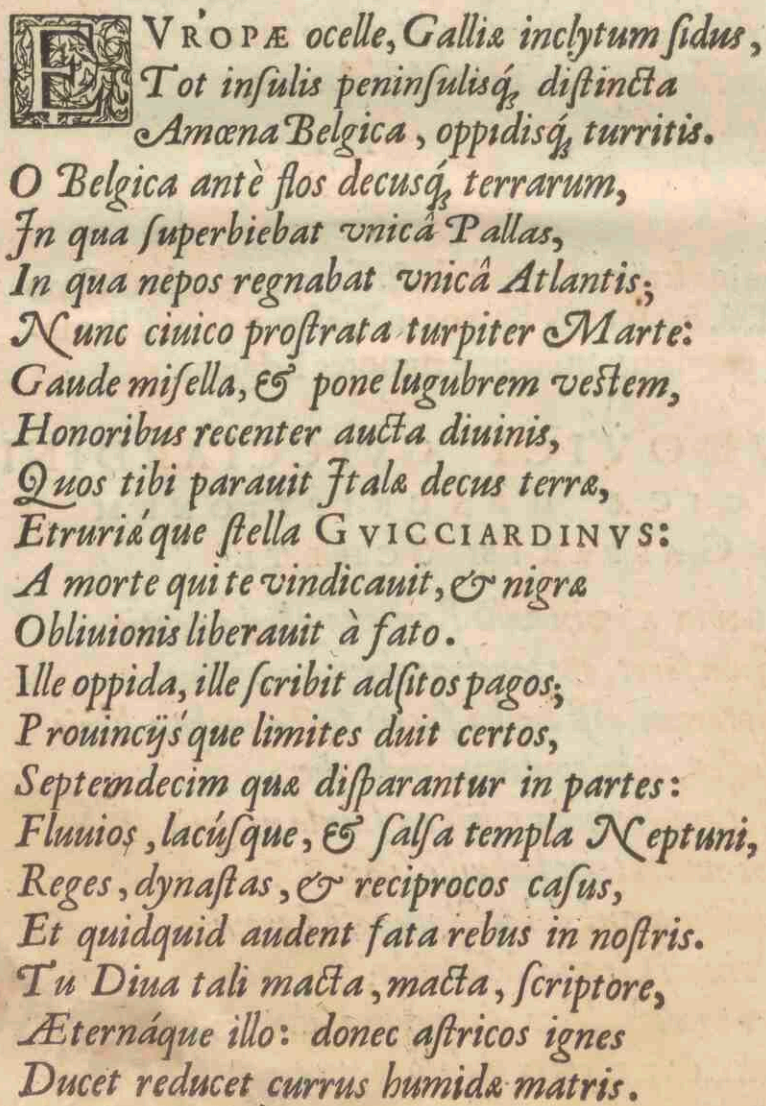 EVROPÆ ocelle, Galliæ inclytum ſidus,
Tot inſulis peninſulisq́; diſtincta
Amœna Belgica, oppidisq́; turritis.
O Belgica antè flos decusq́; terrarum,
In qua ſuperbiebat vnicâ Pallas,
In qua nepos regnabat vnicâ Atlantis;
Nunc ciuico proſtrata turpiter Marte:
Gaude miſella, & pone lugubrem veſtem,
Honoribus recenter aucta diuinis,
Quos tibi parauit Italæ decus terræ,
Etruriǽque ſtella GVICCIARDINVS:
A morte qui te vindicauit, & nigræ
Obliuionis liberauit à fato.
Ille oppida, ille ſcribit adſitos pagos;
Prouincijśque limites duit certos,
Septemdecim quæ diſparantur in partes:
Fluuios, lacúſque, & ſalſa templa Neptuni,
Reges, dynaſtas, & reciprocos caſus,
Et quidquid audent fata rebus in noſtris.
Tu Diua tali macta, macta, ſcriptore,
Æternáque illo: donec aſtricos ignes
Ducet reducet currus humidæ matris.